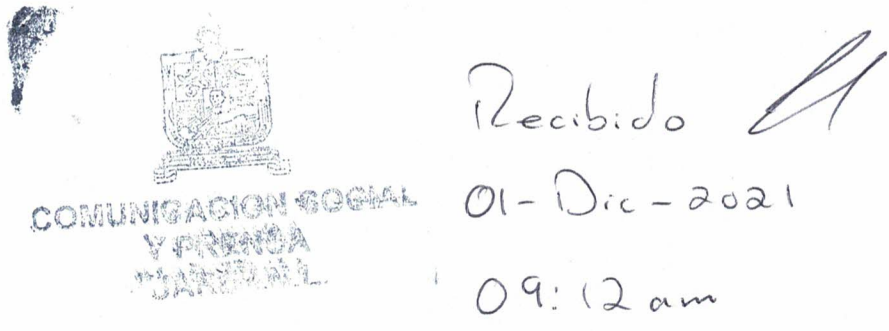 COMUNICACION SOCIAL
Y PRENSA
Recibido
01-Dic-2021
09:12 am